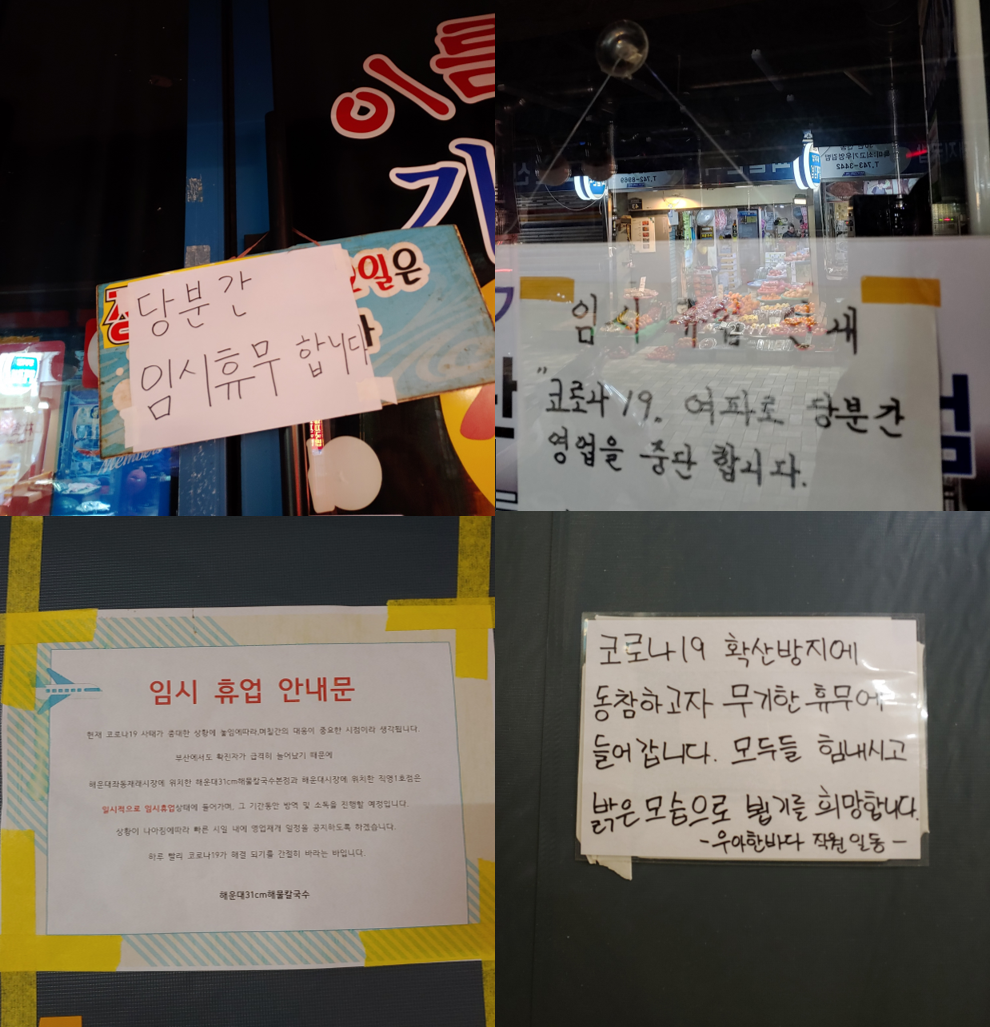 이름
당분간
임시휴무 합니다
요일은
임시 휴업 안내
T.742-8969
T.743-3442
"코로나19. 여파로 당분간
영업을 중단 합니다.
임시 휴업 안내문
현재 코로나19 사태가 중대한 상황에 놓임에따라,며칠간의 대응이 중요한 시점이라 생각됩니다.
부산에서도 확진자가 급격히 늘어났기 때문에
해운대좌동재래시장에 위치한 해운대31cm해물칼국수본점과 해운대시장에 위치한 직영1호점은
일시적으로 임시휴업상태에 들어가며, 그 기간동안 방역 및 소독을 진행할 예정입니다.
상황이 나아짐에따라 빠른 시일 내에 영업재개 일정을 공지하도록 하겠습니다.
하루 빨리 코로나19가 해결 되기를 간절히 바라는 바입니다.
해운대31cm해물칼국수
코로나19 확산방지에
동참하고자 무기한 휴무에
들어갑니다. 모두들 힘내시고
밝은모습으로 뵙기를 희망합니다.
-우아한바다 직원일동-